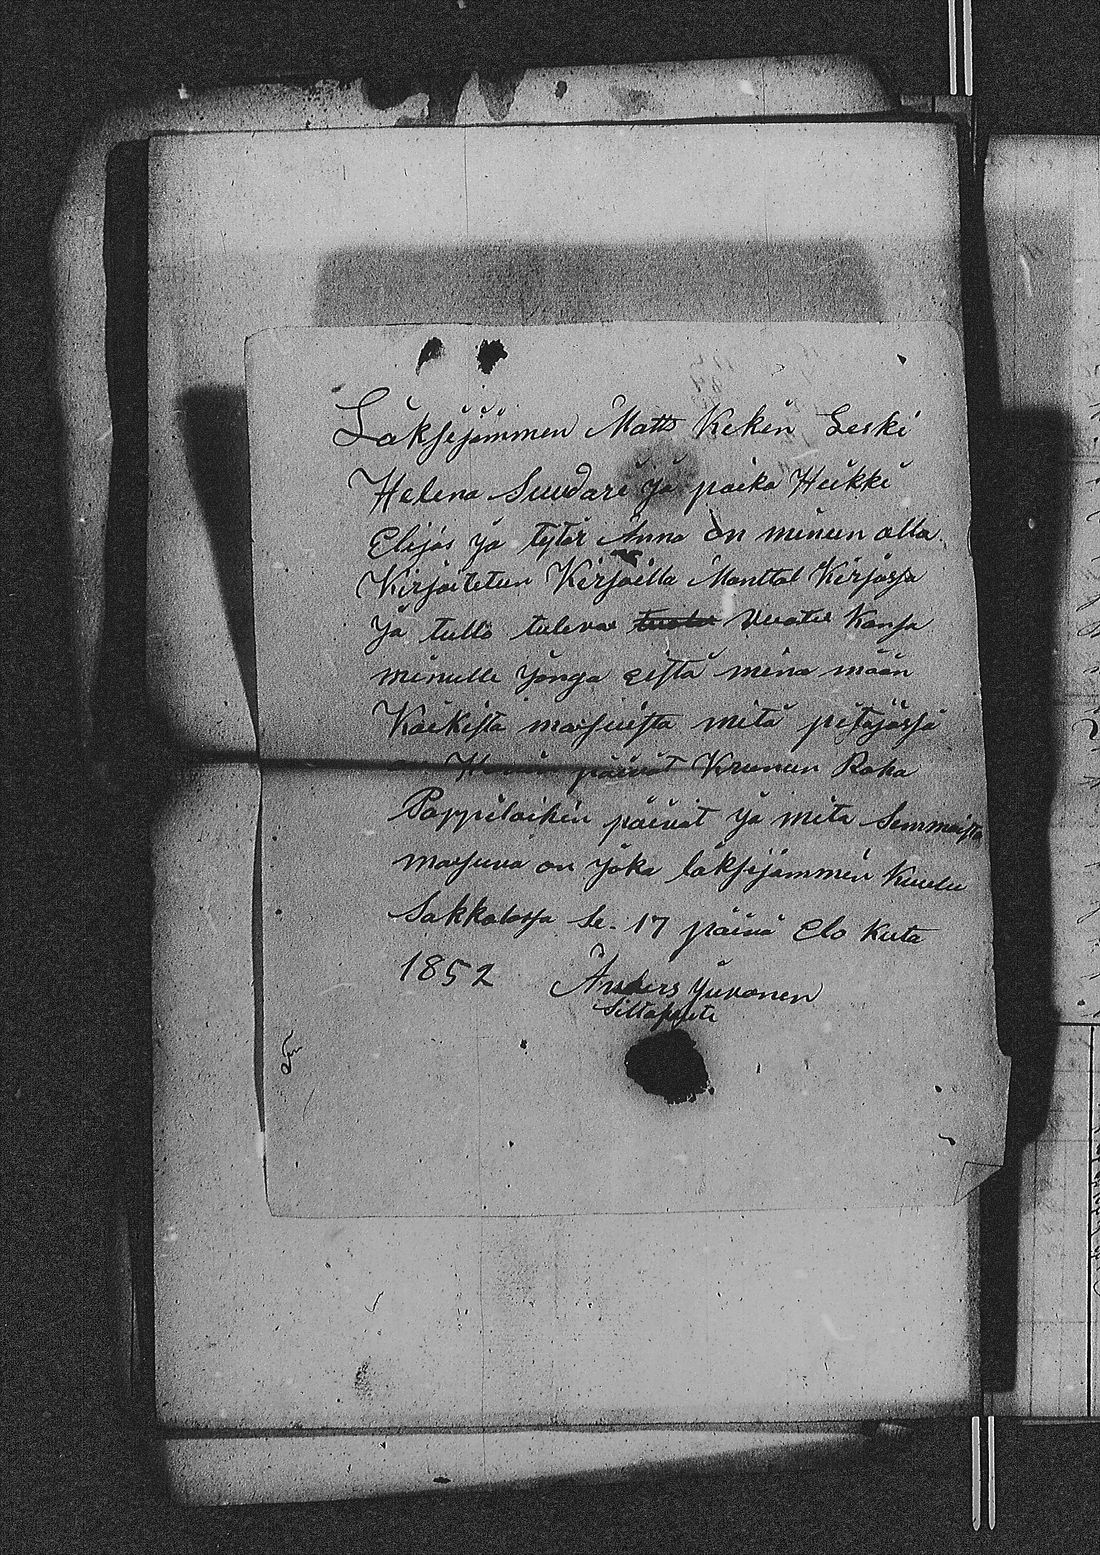 Läksjejämmen Matts Kekën Leski
Helena Suvdari jä poika Heikki
Elijas jä tytär Anna on minun alla
Kirjoitetun Kirjoilla Manttal Kirjassa
Jä tullo tuleva Vuote Kansa
minulle jonga eistä minä mään
Kaikista maksuista mitä pitäjässä
päivät Kruunun Raha
Pappiloihin päivät jä mitä Semmoista
maksuva on joka läksijämmin Kuulu
Sakkolassa Se. 17 päivä Elo kuta
1852 Anders Juvonen